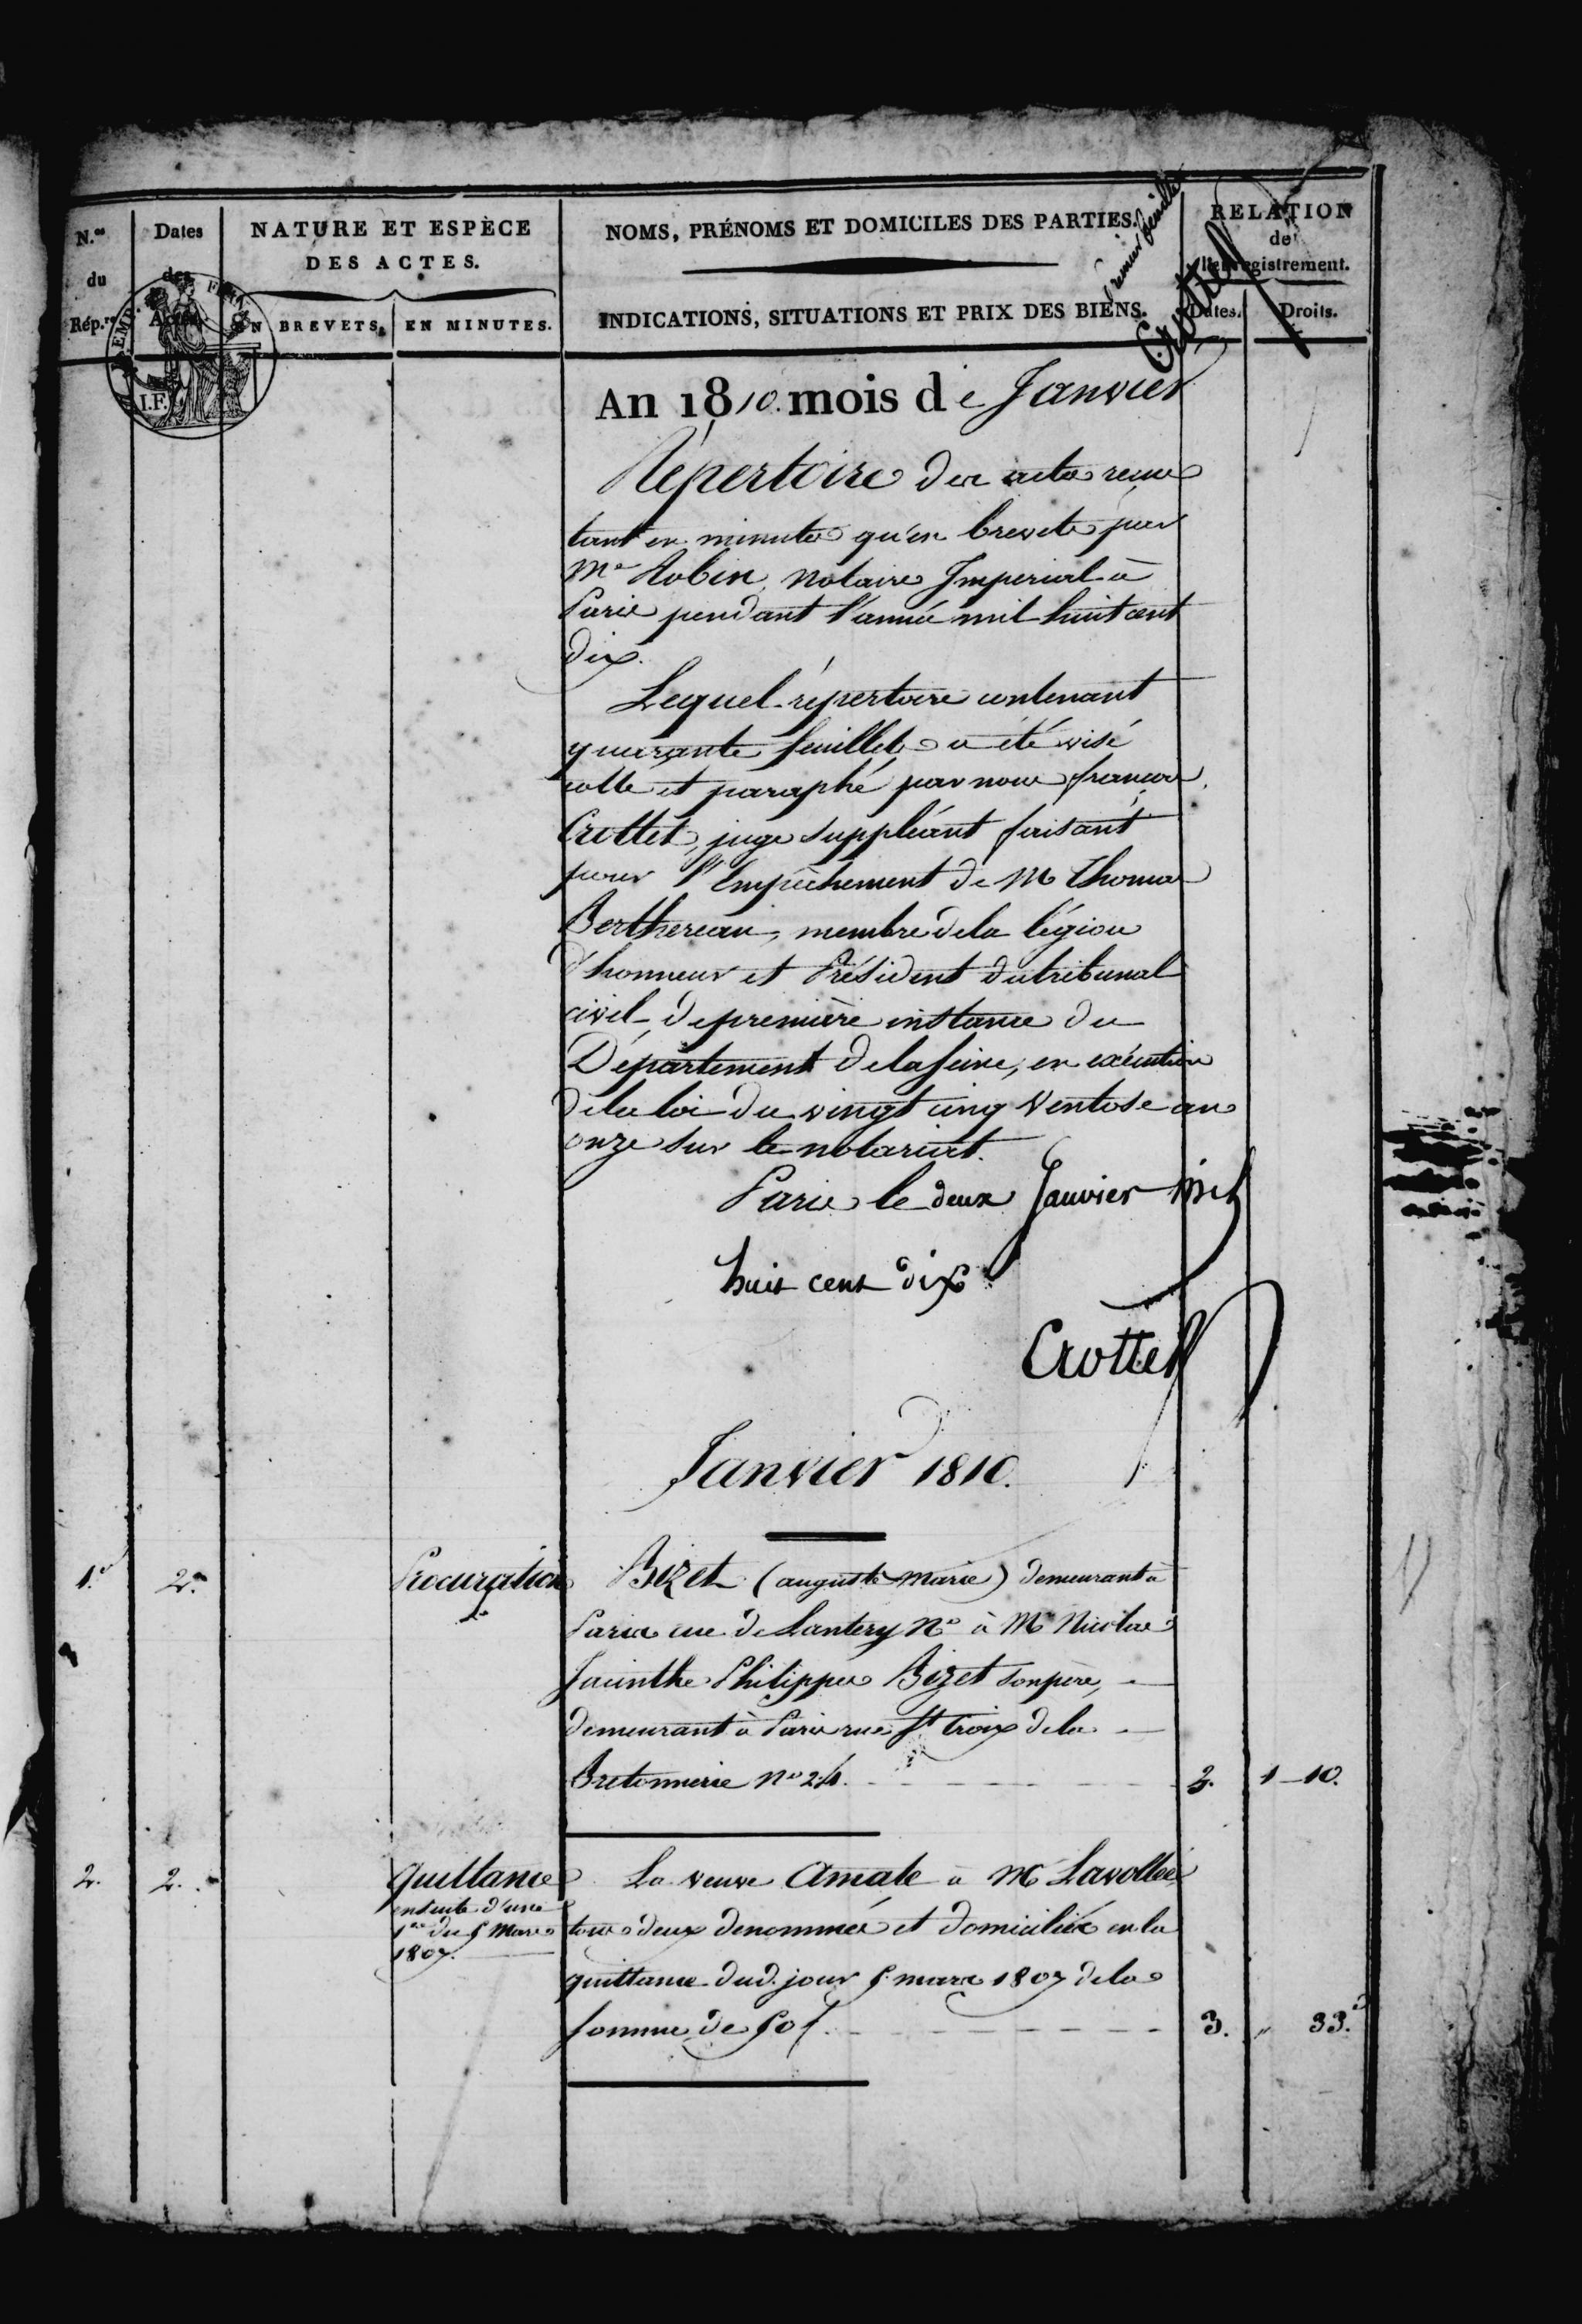 N.os du Rép.re
Dates des Actes
NATURE ET ESPÈCE
DES ACTES.
EN BREVETS.
EN MINUTES.
NOMS, PRÉNOMS ET DOMICILES DES PARTIES.
INDICATIONS, SITUATIONS ET PRIX DES BIENS.
Premier feuillet
Crottet
RELATION
de
l'enregistrement.
Dates.
Droits.
I.F.
An 1810. mois de Janvier
Répertoire des actes reçus
tant en minutes qu'en brevets par
Me Robin, Notaire Imperial à
Paris pendant l'année mil huit cent
dix.
Lequel répertoire contenant
quarante feuillets a été visé
cotté et paraphé par nous françois
Crottet, juge suppléant faisant
pour l'empêchement de M Thomas
Berthereau, membre dela légion
d'honneur et Président dutribunal
civil depremière instance du
Département delaseine, en exécution
dela loi du vingt cinq Ventose an
onze sur le notariat.
Paris le deux Janvier mil
huit cent dix
Crottet
Janvier 1810.
1.er 2. Procuration Bizet (auguste Marie) demeurant à
Paris rue de No à Mr Nicolas
Jacinthe Philippes Bizet sonpère,
demeurant à Paris rue Ste Croix dela
Bretonnerie No 24. 3. 1-10.
2. 2. Quittance La veuve Amale à Mr Lavollée
ensuite d'une
1ere du 5 Mars
1807.
tous deux denommés et domiciliés en la
quittance dud. jour 5 mars 1807 dela
somme de 50f. 3. " 33.c